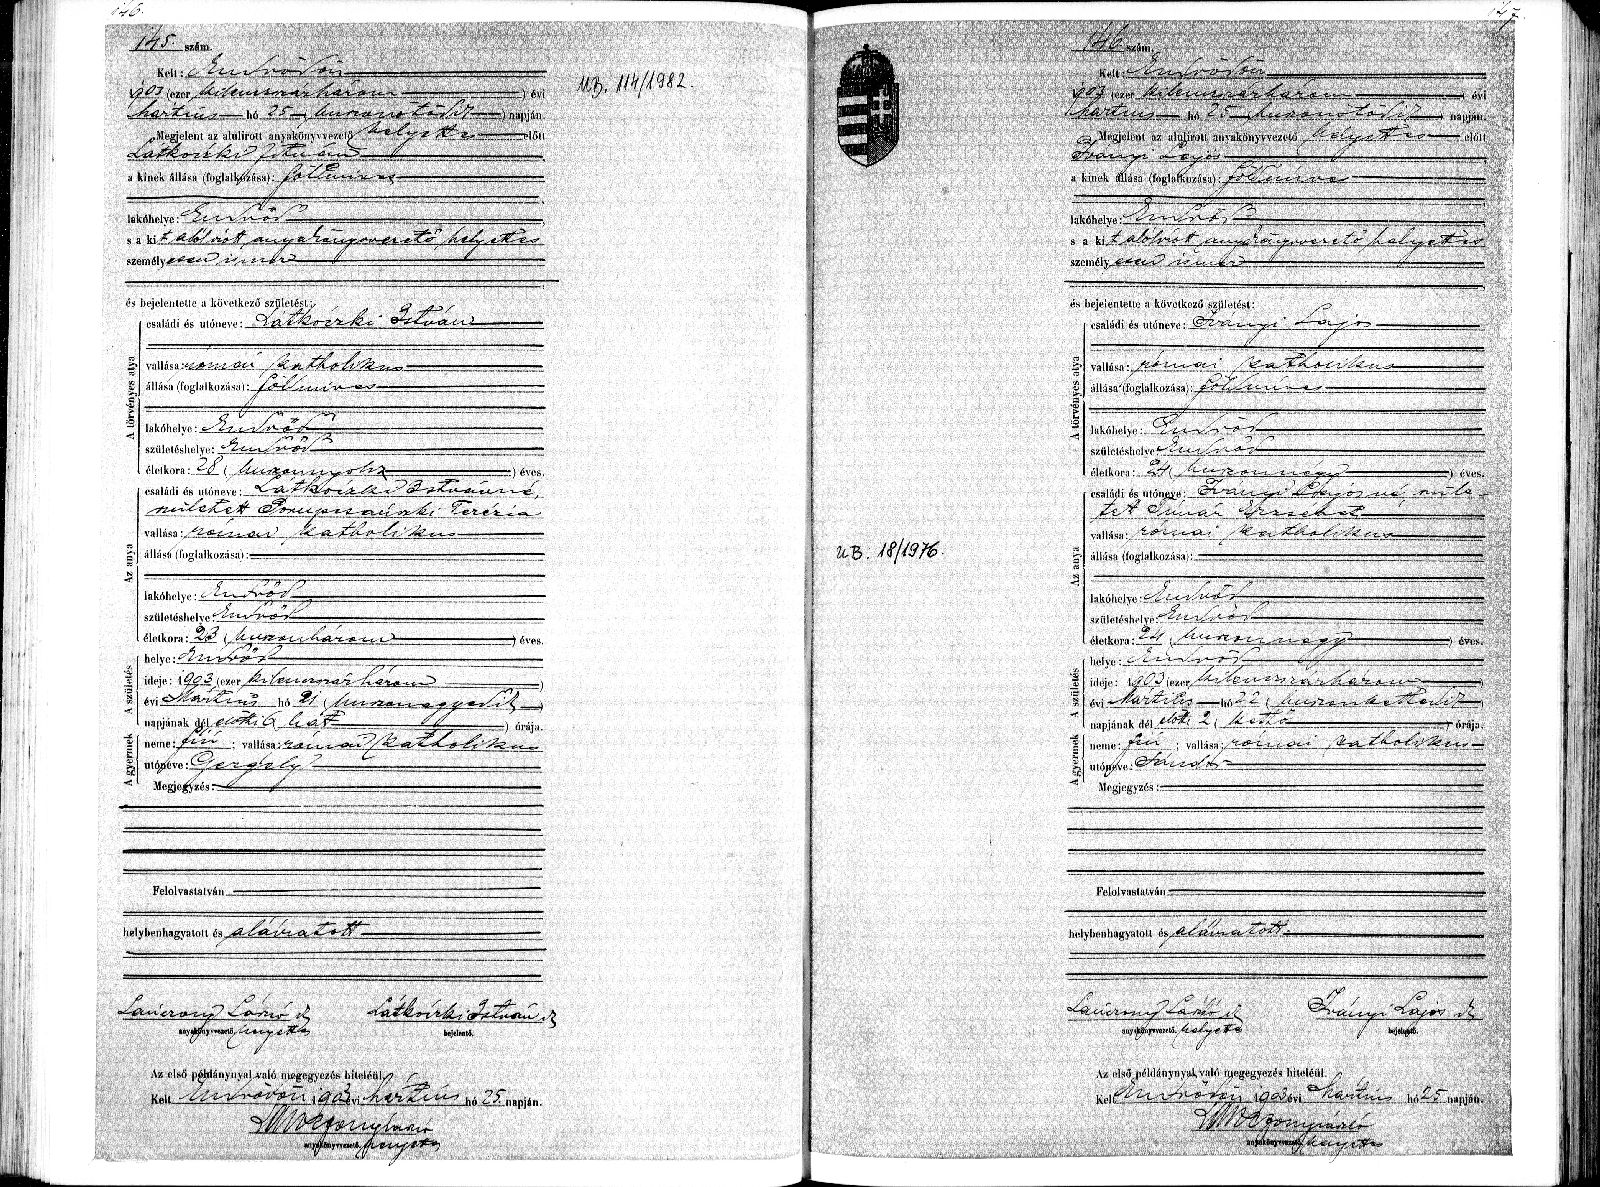 146.
145. szám.
Kelt: Endrődön
1903 (ezer kilencszázhárom) évi
Martius hó 25 (huszonötödik) napján.
Megjelent az alulirott anyakönyvvezető helyettes előtt
Látkóczki István
a kinek állása (foglalkozása): földmíves
lakóhelye: Endrőd
s a kit alólirott anyakönyvvezető helyettes
személyesen ismer
és bejelentette a következő születést:
A törvényes atya
családi és utóneve: Látkóczki István
vallása: római katholikus
állása (foglalkozása): földmíves
lakóhelye: Endrőd
születéshelye: Endrőd
életkora: 28 (huszonnyolcz) éves.
Az anya
családi és utóneve: Látkóczki Istvánné,
született Terézia
vallása: római katholikus
állása (foglalkozása):
lakóhelye: Endrőd
születéshelye: Endrőd
életkora: 23 (huszonhárom) éves.
A születés
helye: Endrőd
ideje: 1903 (ezer kilencszázhárom)
évi Martius hó 21 (huszonegyedik)
napjának dél előtti 6 (hat) órája.
A gyermek
neme: fiú; vallása: római katholikus
utóneve: Gergely
Megjegyzés:
Felolvastatván
helybenhagyatott és aláiratott
László Látkóczki István
anyakönyvvezető. helyettes bejelentő.
Az első példánynyal való megegyezés hiteléül.
Kelt Endrődön 1903 évi Martius hó 25. napján.
anyakönyvvezető. helyettes
UB. 114/1982.
147.
146 szám.
Kelt: Endrődön
1903 (ezer kilencszázhárom) évi
Martius hó 25 (huszonötödik) napján.
Megjelent az alulirott anyakönyvvezető helyettes előtt
Iványi Lajos
a kinek állása (foglalkozása): földmíves
lakóhelye: Endrőd
s a kit alólirott anyakönyvvezető helyettes
személyesen ismer
és bejelentette a következő születést:
A törvényes atya
családi és utóneve: Iványi Lajos
vallása: római katholikus
állása (foglalkozása): földmíves
lakóhelye: Endrőd
születéshelye Endrőd
életkora: 24 (huszonnégy) éves.
Az anya
családi és utóneve: Iványi Lajosné, szüle-
tett Erzsébet
vallása: római katholikus
állása (foglalkozása):
lakóhelye: Endrőd
születéshelye Endrőd
életkora: 24 (huszonnégy) éves.
A születés
helye: Endrőd
ideje: 1903 (ezer kilencszázhárom)
évi Martius hó 22 (huszonkettedik)
napjának dél előtti 2 (kettő) órája.
A gyermek
neme: fiú; vallása: római katholikus
utóneve: Sándor
Megjegyzés:
Felolvastatván
helybenhagyatott és aláiratott
László Iványi Lajos
anyakönyvvezető. helyettes bejelentő.
Az első példánynyal való megegyezés hiteléül.
Kelt Endrődön 1903 évi Martius hó 25 napján.
anyakönyvvezető. helyettes
UB. 18/1976.